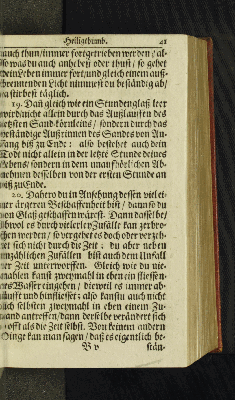 Heiligthumb. 41
auch thun/immer fortgetrieben werden / al-
so was du auch anhebest oder thust / so gehet
dein Leben immer fort/und gleich einem auß-
brennenden Licht nimmest du beständig ab/
ja stirbest täglich.
19. Daß gleich wie ein Stundenglaß leer
wird/nicht allein durch das Auslauffen des
letzten Sandkörnleins / sondern durch das
beständige Außrinnen des Sandes von An-
fang biß zu Ende: also bestehet auch dein
Tode nicht allein in der letzte Stunde deines
Lebens/ sondern in dem unauffhörlichen Ab-
nehmen desselben von der ersten Stunde an
biß zu Ende.
20. Dahero du in Ansehung dessen viel ei-
ner ärgeren Beschaffenheit bist / dann so du
von Glaß geschaffen wärest. Dann dasselbe/
obwol es durch vielerley Zufälle kan zerbro-
chen werden / so vergehet es doch oder verzeh-
ret sich nicht durch die Zeit ; du aber neben
unzählichen Zufällen bist auch dem Unfall
der Zeit unterworffen. Gleich wie du nie-
mahlen kanst zweymahl in eben ein fliessen-
des Wasser eingehen / dieweil es immer ab-
laufft und hinfliesset ; also kanstu auch nicht
dich selbsten zweymahl in eben einem Zu-
stand antreffen/dann derselbe verändert sich
so offt als die Zeit selbst. Von keinem andern
Dinge kan man sagen / daß es eigentlich be-
B v stän-